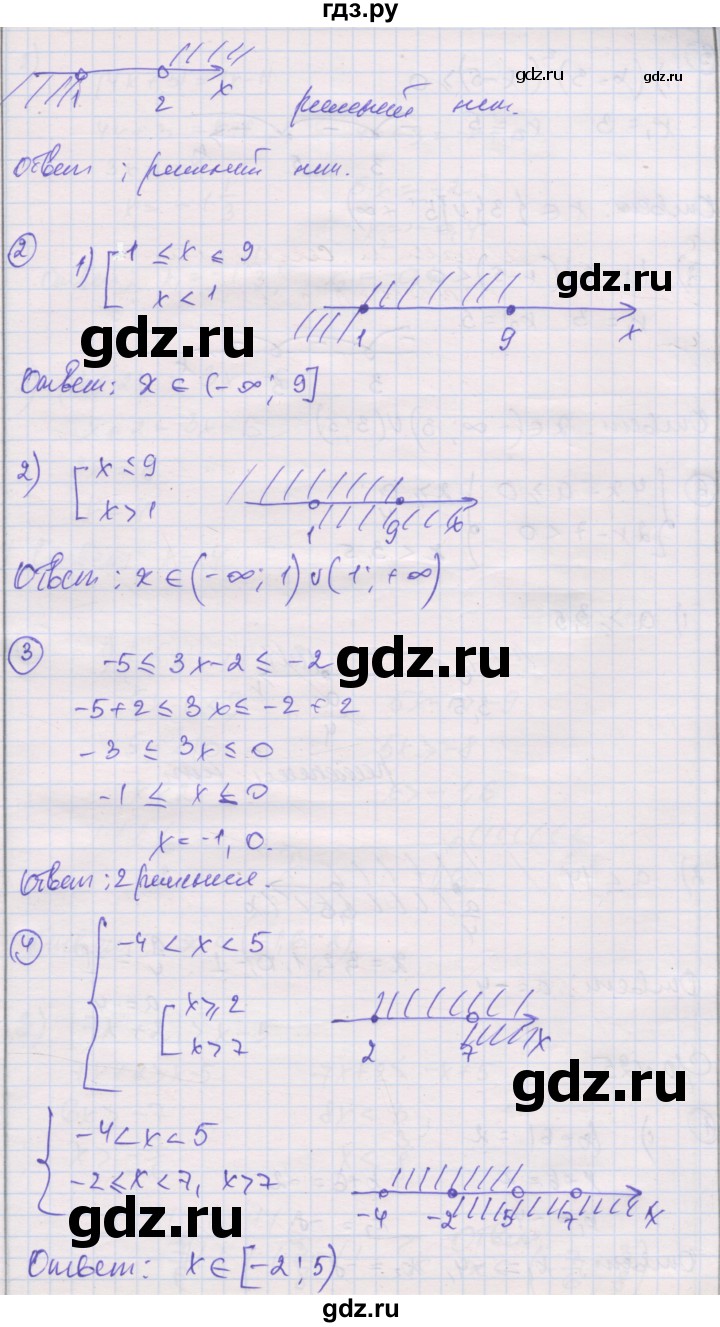 гдз.ру
gdz.ru gdz.ru
1 2 x решений нет.
Ответ: решений нет.
2 1) [ 1 ≤ x ≤ 9
x < 1
gdz.ru
1 9 x
gdz.ru
Ответ: x ∈ (-∞; 9]
2) [ x ≤ 9
x > 1
1 9 x
Ответ: x ∈ (-∞; 1) ∪ (1; +∞)
3 -5 ≤ 3x-2 ≤ -2
gdz.ru
-5+2 ≤ 3x ≤ -2+2
-3 ≤ 3x ≤ 0
-1 ≤ x ≤ 0
x = -1, 0.
Ответ: 2 решения.
4 { -4 < x < 5
[ x ≥ 2
x > 7
2 7 x
gdz.ru
{ -4 < x < 5
-2 ≤ x < 7, x > 7
-4 -2 5 7 x
gdz.ru
Ответ: x ∈ [-2; 5)
gdz.ru